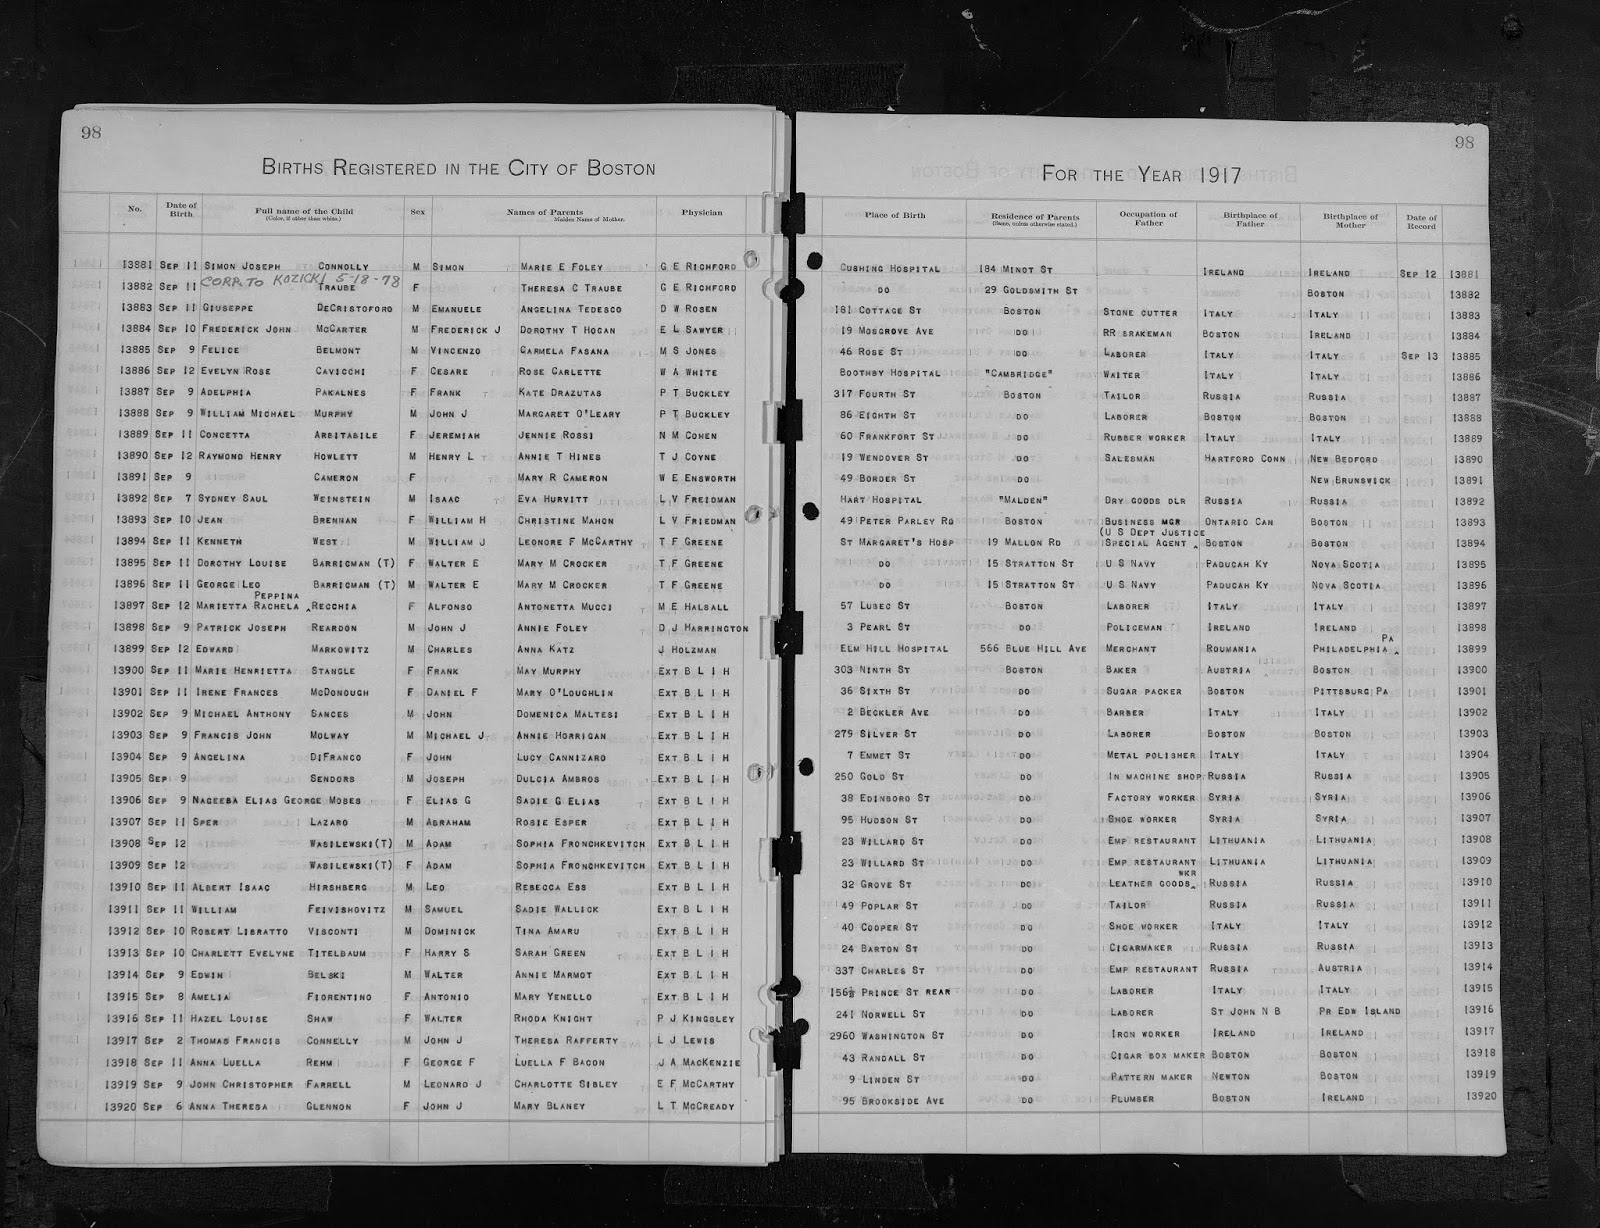 98
BIRTHS REGISTERED IN THE CITY OF BOSTON
No. Date of Birth Full name of the Child (Color, if other than white.) Sex Names of Parents Maiden Name of Mother. Physician
13881 SEP 11 SIMON JOSEPH CONNOLLY M SIMON MARIE E FOLEY G E RICHFORD
CORR. TO KOZICKI 5-18-78
13882 SEP 11 TRAUBE F THERESA C TRAUBE G E RICHFORD
13883 SEP 11 GIUSEPPE DECRISTOFORO M EMANUELE ANGELINA TEDESCO D W ROSEN
13884 SEP 10 FREDERICK JOHN MCCARTER M FREDERICK J DOROTHY T HOGAN E L SAWYER
13885 SEP 9 FELICE BELMONT M VINCENZO CARMELA FASANA M S JONES
13886 SEP 12 EVELYN ROSE CAVICCHI F CESARE ROSE CARLETTE W A WHITE
13887 SEP 9 ADELPHIA PAKALNES F FRANK KATE DRAZUTAS P T BUCKLEY
13888 SEP 9 WILLIAM MICHAEL MURPHY M JOHN J MARGARET O'LEARY P T BUCKLEY
13889 SEP 11 CONCETTA ARBITABILE F JEREMIAH JENNIE ROSSI N M COHEN
13890 SEP 12 RAYMOND HENRY HOWLETT M HENRY L ANNIE T HINES T J COYNE
13891 SEP 9 CAMERON F MARY R CAMERON W E ENSWORTH
13892 SEP 7 SYDNEY SAUL WEINSTEIN M ISAAC EVA HURVITT L V FREIDMAN
13893 SEP 10 JEAN BRENNAN F WILLIAM H CHRISTINE MAHON L V FRIEDMAN
13894 SEP 11 KENNETH WEST M WILLIAM J LEONORE F MCCARTHY T F GREENE
13895 SEP 11 DOROTHY LOUISE BARRICMAN (T) F WALTER E MARY M CROCKER T F GREENE
13896 SEP 11 GEORGE LEO BARRICMAN (T) M WALTER E MARY M CROCKER T F GREENE
PEPPINA
13897 SEP 12 MARIETTA RACHELA ^ RECCHIA F ALFONSO ANTONETTA MUCCI M E HALSALL
13898 SEP 9 PATRICK JOSEPH REARDON M JOHN J ANNIE FOLEY D J HARRINGTON
13899 SEP 12 EDWARD MARKOWITZ M CHARLES ANNA KATZ J HOLZMAN
13900 SEP 11 MARIE HENRIETTA STANGLE F FRANK MAY MURPHY EXT B L I H
13901 SEP 11 IRENE FRANCES MCDONOUGH F DANIEL F MARY O'LOUGHLIN EXT B L I H
13902 SEP 9 MICHAEL ANTHONY SANCES M JOHN DOMENICA MALTESI EXT B L I H
13903 SEP 9 FRANCIS JOHN MOLWAY M MICHAEL J ANNIE HORRIGAN EXT B L I H
13904 SEP 9 ANGELINA DIFRANCO F JOHN LUCY CANNIZARO EXT B L I H
13905 SEP 9 SENDORS M JOSEPH DULCIA AMBROS EXT B L I H
13906 SEP 9 NAGEEBA ELIAS GEORGE MOSES F ELIAS G SADIE G ELIAS EXT B L I H
13907 SEP 11 SPER LAZARO M ABRAHAM ROSIE ESPER EXT B L I H
13908 SEP 12 WASILEWSKI(T) M ADAM SOPHIA FRONCHKEVITCH EXT B L I H
13909 SEP 12 WASILEWSKI(T) F ADAM SOPHIA FRONCHKEVITCH EXT B L I H
13910 SEP 11 ALBERT ISAAC HIRSHBERG M LEO REBECCA ESS EXT B L I H
13911 SEP 11 WILLIAM FEIVISHOVITZ M SAMUEL SADIE WALLICK EXT B L I H
13912 SEP 10 ROBERT LIBRATTO VISCONTI M DOMINICK TINA AMARU EXT B L I H
13913 SEP 10 CHARLETT EVELYNE TITELBAUM F HARRY S SARAH GREEN EXT B L I H
13914 SEP 9 EDWIN BELSKI M WALTER ANNIE MARMOT EXT B L I H
13915 SEP 8 AMELIA FIORENTINO F ANTONIO MARY YENELLO EXT B L I H
13916 SEP 11 HAZEL LOUISE SHAW F WALTER RHODA KNIGHT P J KINGSLEY
13917 SEP 2 THOMAS FRANCIS CONNELLY M JOHN J THERESA RAFFERTY L J LEWIS
13918 SEP 11 ANNA LUELLA REHM F GEORGE F LUELLA F BACON J A MACKENZIE
13919 SEP 9 JOHN CHRISTOPHER FARRELL M LEONARD J CHARLOTTE SIBLEY E F MCCARTHY
13920 SEP 6 ANNA THERESA GLENNON F JOHN J MARY BLANEY L T MCCREADY
98
FOR THE YEAR 1917
Place of Birth Residence of Parents (Same, unless otherwise stated.) Occupation of Father Birthplace of Father Birthplace of Mother Date of Record
CUSHING HOSPITAL 184 MINOT ST IRELAND IRELAND SEP 12 13881
DO 29 GOLDSMITH ST BOSTON 13882
181 COTTAGE ST BOSTON STONE CUTTER ITALY ITALY 13883
19 MOSGROVE AVE DO RR BRAKEMAN BOSTON IRELAND 13884
46 ROSE ST DO LABORER ITALY ITALY SEP 13 13885
BOOTHBY HOSPITAL "CAMBRIDGE" WAITER ITALY ITALY 13886
317 FOURTH ST BOSTON TAILOR RUSSIA RUSSIA 13887
86 EIGHTH ST DO LABORER BOSTON BOSTON 13888
60 FRANKFORT ST DO RUBBER WORKER ITALY ITALY 13889
19 WENDOVER ST DO SALESMAN HARTFORD CONN NEW BEDFORD 13890
49 BORDER ST DO NEW BRUNSWICK 13891
HART HOSPITAL "MALDEN" DRY GOODS DLR RUSSIA RUSSIA 13892
49 PETER PARLEY RD BOSTON BUSINESS MGR ONTARIO CAN BOSTON 13893
(U S DEPT JUSTICE
ST MARGARET'S HOSP 19 MALLON RD SPECIAL AGENT ^ BOSTON BOSTON 13894
DO 15 STRATTON ST U S NAVY PADUCAH KY NOVA SCOTIA 13895
DO 15 STRATTON ST U S NAVY PADUCAH KY NOVA SCOTIA 13896
57 LUBEC ST BOSTON LABORER ITALY ITALY 13897
3 PEARL ST DO POLICEMAN IRELAND IRELAND 13898
PA
ELM HILL HOSPITAL 566 BLUE HILL AVE MERCHANT ROUMANIA PHILADELPHIA ^ 13899
303 NINTH ST BOSTON BAKER AUSTRIA BOSTON 13900
36 SIXTH ST DO SUGAR PACKER BOSTON PITTSBURG PA 13901
2 BECKLER AVE DO BARBER ITALY ITALY 13902
279 SILVER ST DO LABORER BOSTON BOSTON 13903
7 EMMET ST DO METAL POLISHER ITALY ITALY 13904
250 GOLD ST DO IN MACHINE SHOP RUSSIA RUSSIA 13905
38 EDINBORO ST DO FACTORY WORKER SYRIA SYRIA 13906
95 HUDSON ST DO SHOE WORKER SYRIA SYRIA 13907
23 WILLARD ST DO EMP RESTAURANT LITHUANIA LITHUANIA 13908
23 WILLARD ST DO EMP RESTAURANT LITHUANIA LITHUANIA 13909
WKR
32 GROVE ST DO LEATHER GOODS ^ RUSSIA RUSSIA 13910
49 POPLAR ST DO TAILOR RUSSIA RUSSIA 13911
40 COOPER ST DO SHOE WORKER ITALY ITALY 13912
24 BARTON ST DO CIGARMAKER RUSSIA RUSSIA 13913
337 CHARLES ST DO EMP RESTAURANT RUSSIA AUSTRIA 13914
156½ PRINCE ST REAR DO LABORER ITALY ITALY 13915
241 NORWELL ST DO LABORER ST JOHN N B PR EDW ISLAND 13916
2960 WASHINGTON ST DO IRON WORKER IRELAND IRELAND 13917
43 RANDALL ST DO CIGAR BOX MAKER BOSTON BOSTON 13918
9 LINDEN ST DO PATTERN MAKER NEWTON BOSTON 13919
95 BROOKSIDE AVE DO PLUMBER BOSTON IRELAND 13920